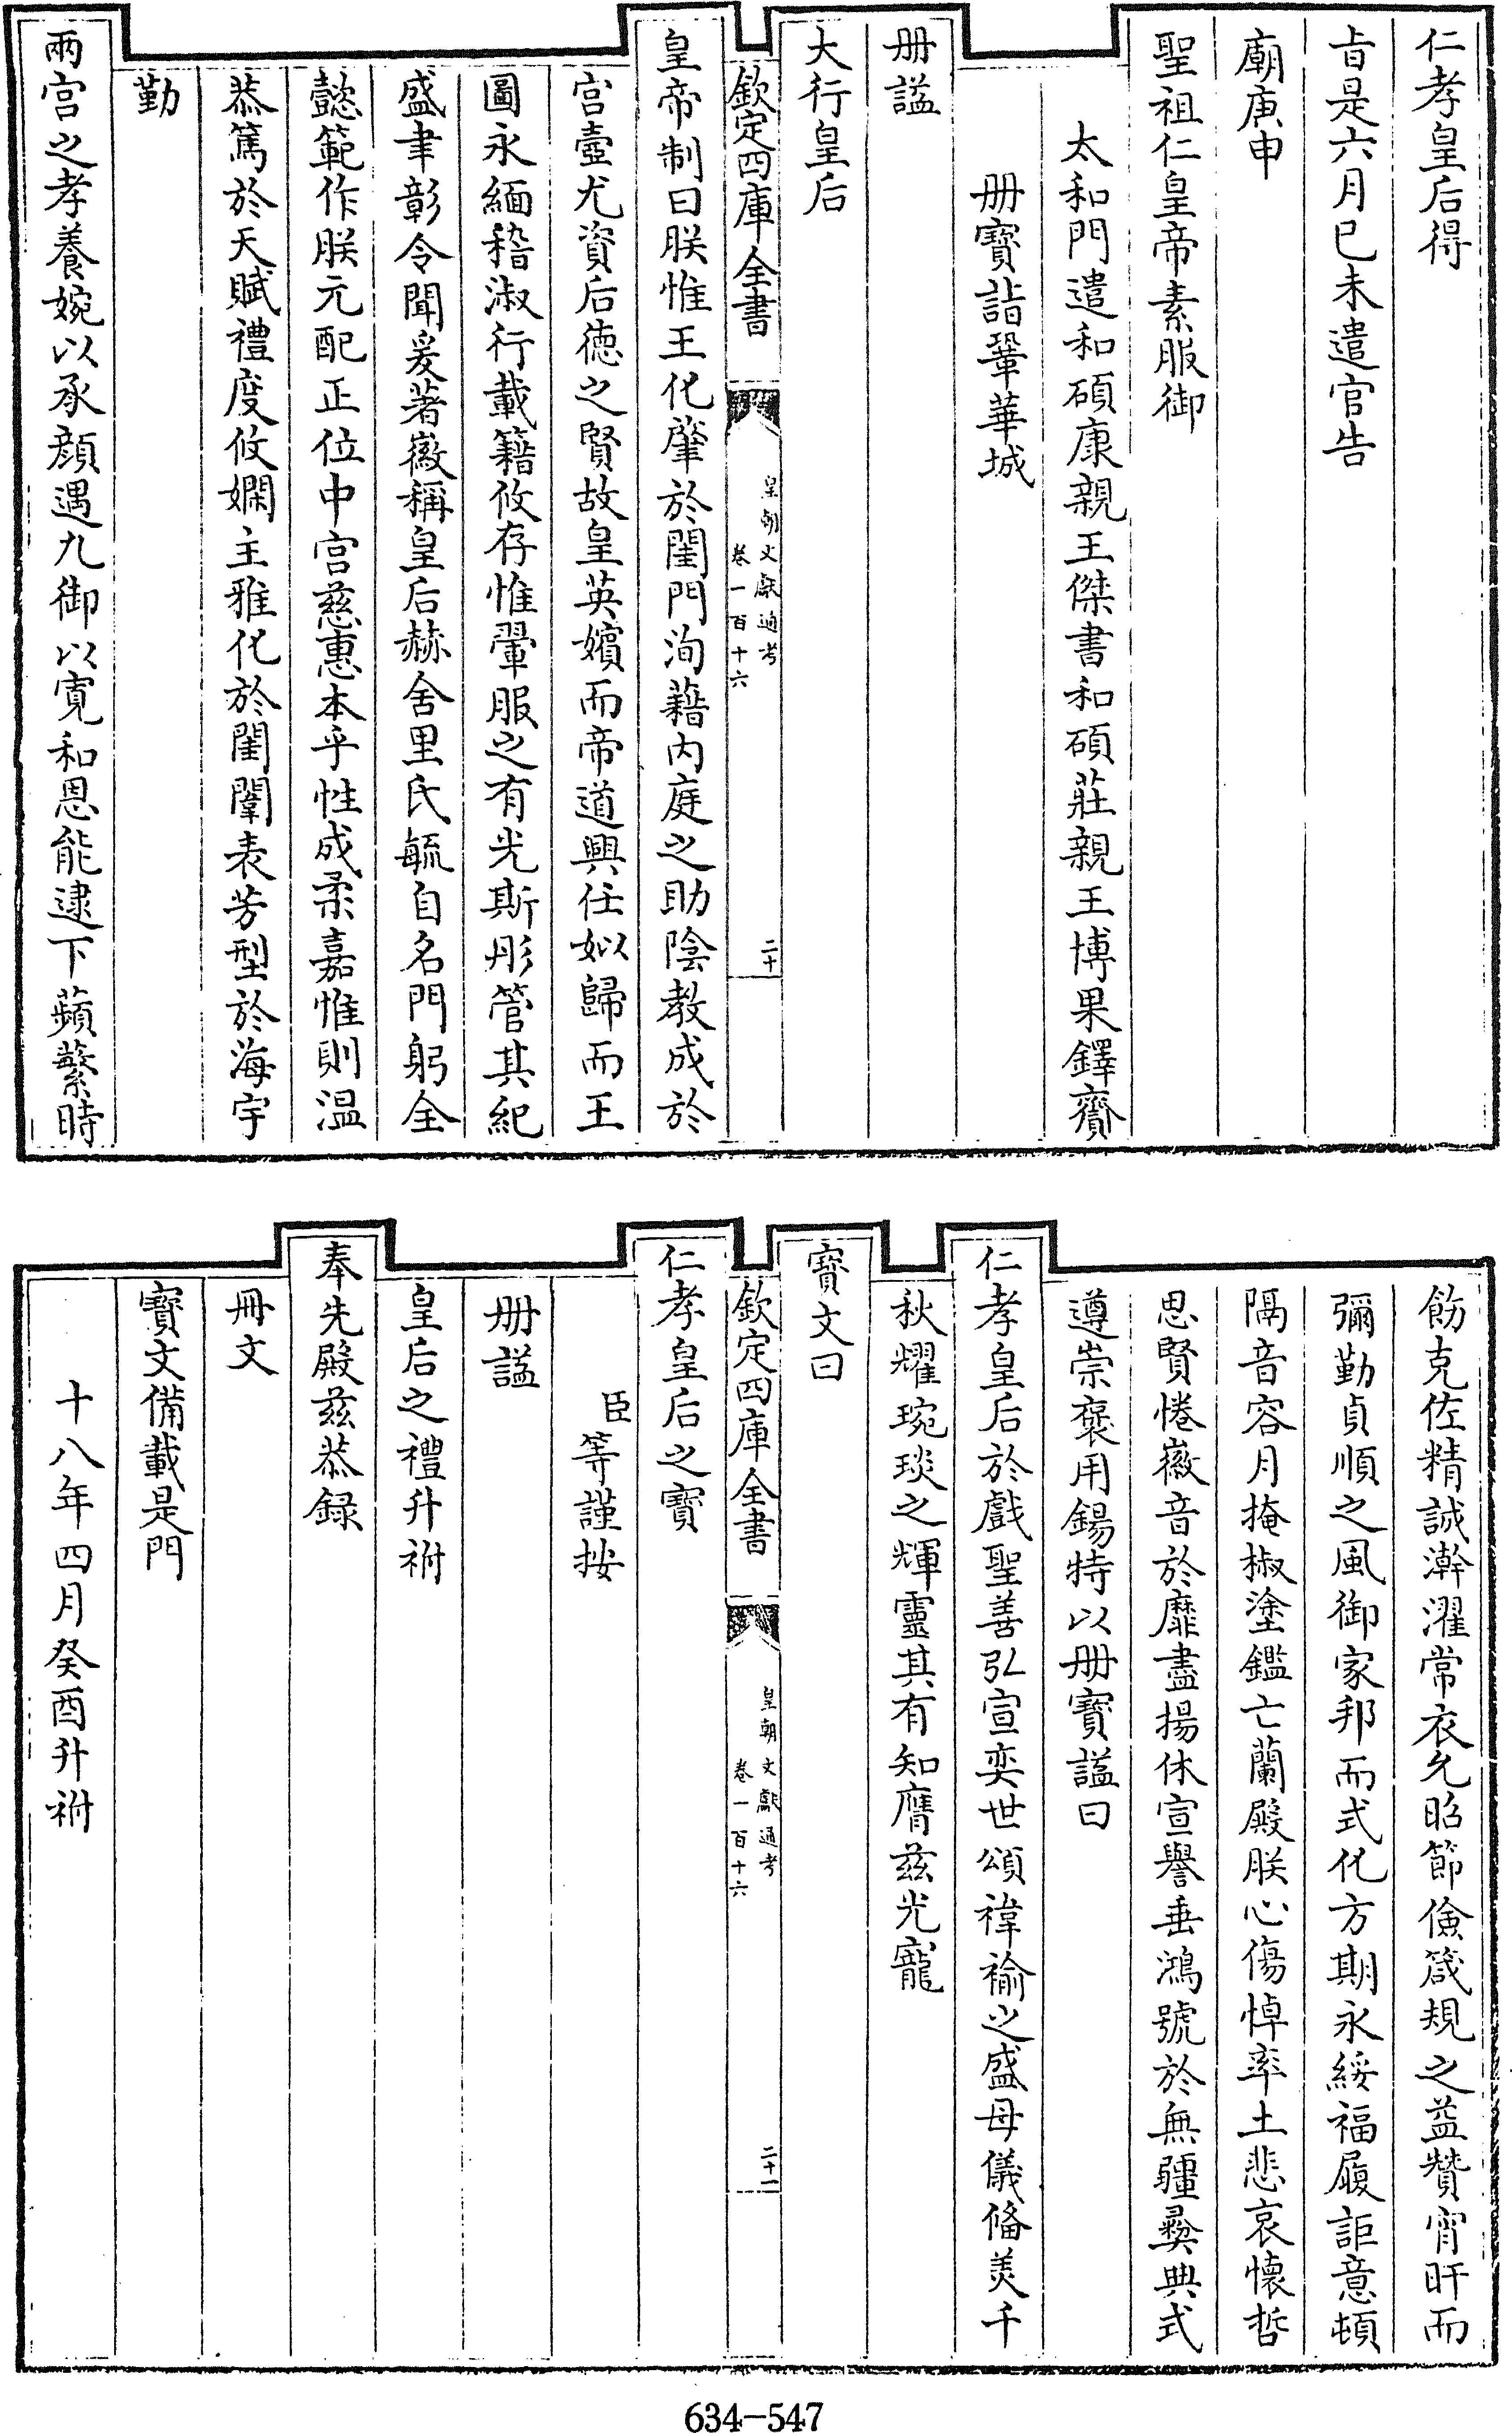 仁孝皇后得
㫖是六月己未遣官告
廟庚申
聖祖仁皇帝素服御
太和門遣和碩康親王傑書和碩莊親王博果鐸齎
册寶詣鞏華城
册諡
大行皇后
欽定四庫全書
皇朝文獻通考
卷一百十六
二十
皇帝制曰朕惟王化肇於閨門洵藉内庭之助陰教成於
宫壼尤資后徳之賢故皇英嬪而帝道興任姒歸而王
圖永緬稽淑行載籍攸存惟翬服之有光斯彤管其紀
盛聿彰令聞爰著徽稱皇后赫舍里氏毓自名門躬全
懿範作朕元配正位中宫慈惠本乎性成柔嘉惟則温
恭篤於天賦禮度攸嫻主雅化於閨闈表芳型於海宇
勤
兩宫之孝養婉以承顔遇九御以寛和恩能逮下蘋蘩時
飭克佐精誠澣濯常衣允昭節儉箴規之益贊宵旰而
彌勤貞順之風御家邦而式化方期永綏福履詎意頓
隔音容月掩椒塗鑑亡蘭殿朕心傷悼率土悲哀懷哲
思賢惓徽音於靡盡揚休宣譽垂鴻號於無疆彝典式
遵崇褒用錫特以册寶諡曰
仁孝皇后於戲聖善弘宣奕世頌褘褕之盛母儀備美千
秋耀琬琰之輝靈其有知膺兹光寵
寶文曰
欽定四庫全書
皇朝文獻通考
卷一百十六
二十一
仁孝皇后之寶
臣等謹按
册諡
皇后之禮升祔
奉先殿兹恭録
冊文
寶文備載是門
十八年四月癸酉升祔
634-547